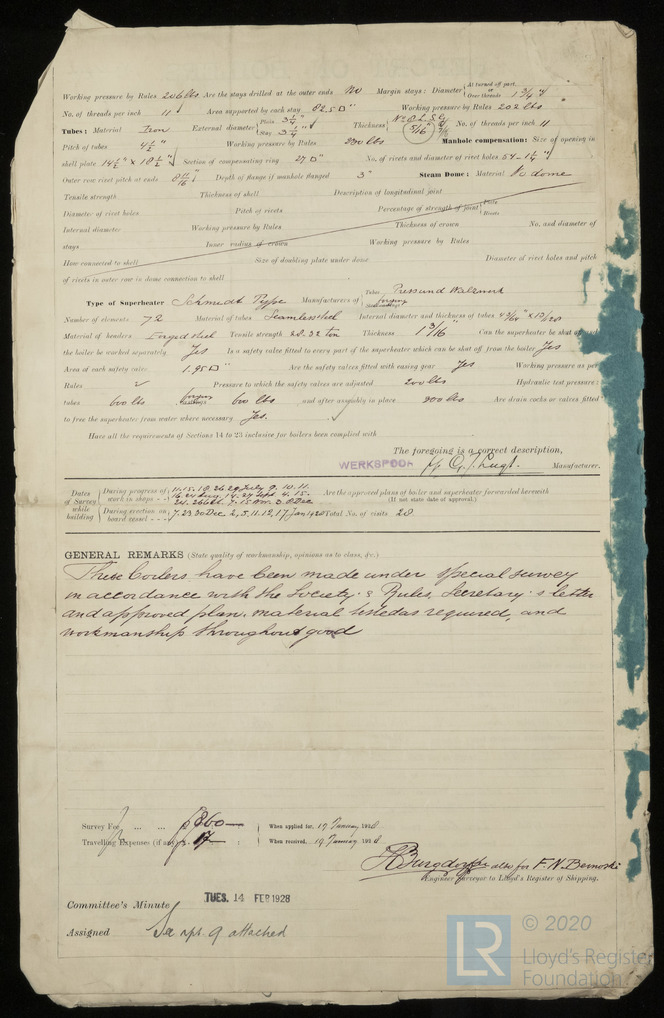 Working pressure by Rules 206 lbs Are the stays drilled at the outer ends No Margin stays: Diameter { At turned off part, or Over threads 1 3/4"
No. of threads per inch 11 Area supported by each stay 82.5 □" Working pressure by Rules 202 lbs
Tubes: Material Iron External diameter { Plain 3 1/4" Stay 3 1/4" Thickness { No 8 L.S.G. 5/16" No. of threads per inch 11
Pitch of tubes 4 1/2" Working pressure by Rules 230 lbs Manhole compensation: Size of opening in
shell plate 14 1/2" x 18 1/2" Section of compensating ring 27 □" No. of rivets and diameter of rivet holes 54 - 1 1/4"
Outer row rivet pitch at ends 8 11/16" Depth of flange if manhole flanged 3" Steam Dome: Material No dome
Tensile strength Thickness of shell Description of longitudinal joint
Diameter of rivet holes Pitch of rivets Percentage of strength of joint { Plate Rivets
Internal diameter Working pressure by Rules Thickness of crown No. and diameter of
stays Inner radius of crown Working pressure by Rules
How connected to shell Size of doubling plate under dome Diameter of rivet holes and pitch
of rivets in outer row in dome connection to shell
Type of Superheater Schmidt Type Manufacturers of { Tubes Press und Walzwerk forgings
Number of elements 72 Material of tubes Seamless steel Internal diameter and thickness of tubes
Material of headers Forged steel Tensile strength 28.32 ton Thickness 1 3/16" Can the superheater be shut off
the boiler be worked separately Yes Is a safety valve fitted to every part of the superheater which can be shut off from the boiler Yes
Area of each safety valve 1.95 □" Are the safety valves fitted with easing gear Yes Working pressure as per
Rules ✓ Pressure to which the safety valves are adjusted 200 lbs Hydraulic test pressure:
tubes 600 lbs forgings 600 lbs and after assembly in place 200 lbs Are drain cocks or valves fitted
to free the superheater from water where necessary Yes.
Have all the requirements of Sections 14 to 23 inclusive for boilers been complied with
The foregoing is a correct description,
WERKSPOOR Manufacturer.
Dates of Survey while building { During progress of work in shops - - 11. 15. 18. 26. 29 July 9. 10. 11.
16. 24 Aug. 14. 27 Sept. 4. 15. Are the approved plans of boiler and superheater forwarded herewith
(If not state date of approval.)
During erection on board vessel - - - 7. 23. 30 Dec. 2, 5, 11, 12, 17 Jan 1928 Total No. of visits 28
GENERAL REMARKS (State quality of workmanship, opinions as to class, &c.)
These boilers have been made under special survey
in accordance with the Society's Rules, Secretary's letter
and approved plan, material tested as required, and
workmanship throughout good
Survey Fee ... ... ƒ 860— When applied for, 17 January 1928
Travelling Expenses (if any) ƒ 17 : When received, 19 January 1928
Burgdorffer also for F. N. Bernoski
Engineer Surveyor to Lloyd's Register of Shipping.
Committee's Minute TUES. 14 FEB 1928
Assigned See rpt. 9 attached
LR © 2020
Lloyd's Register
Foundation